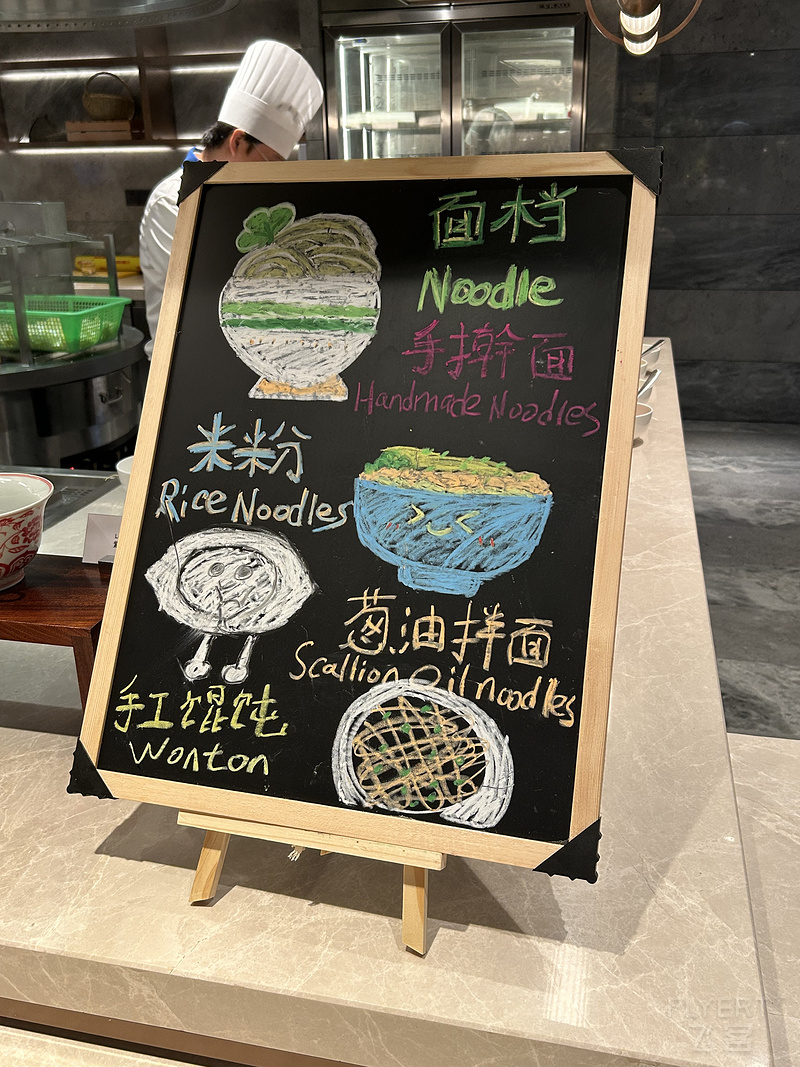 面档
Noodle
手擀面
Handmade Noodles
米粉
Rice Noodles
葱油拌面
Scallion Oil noodles
手工馄饨
Wonton
FLYERT
飞客